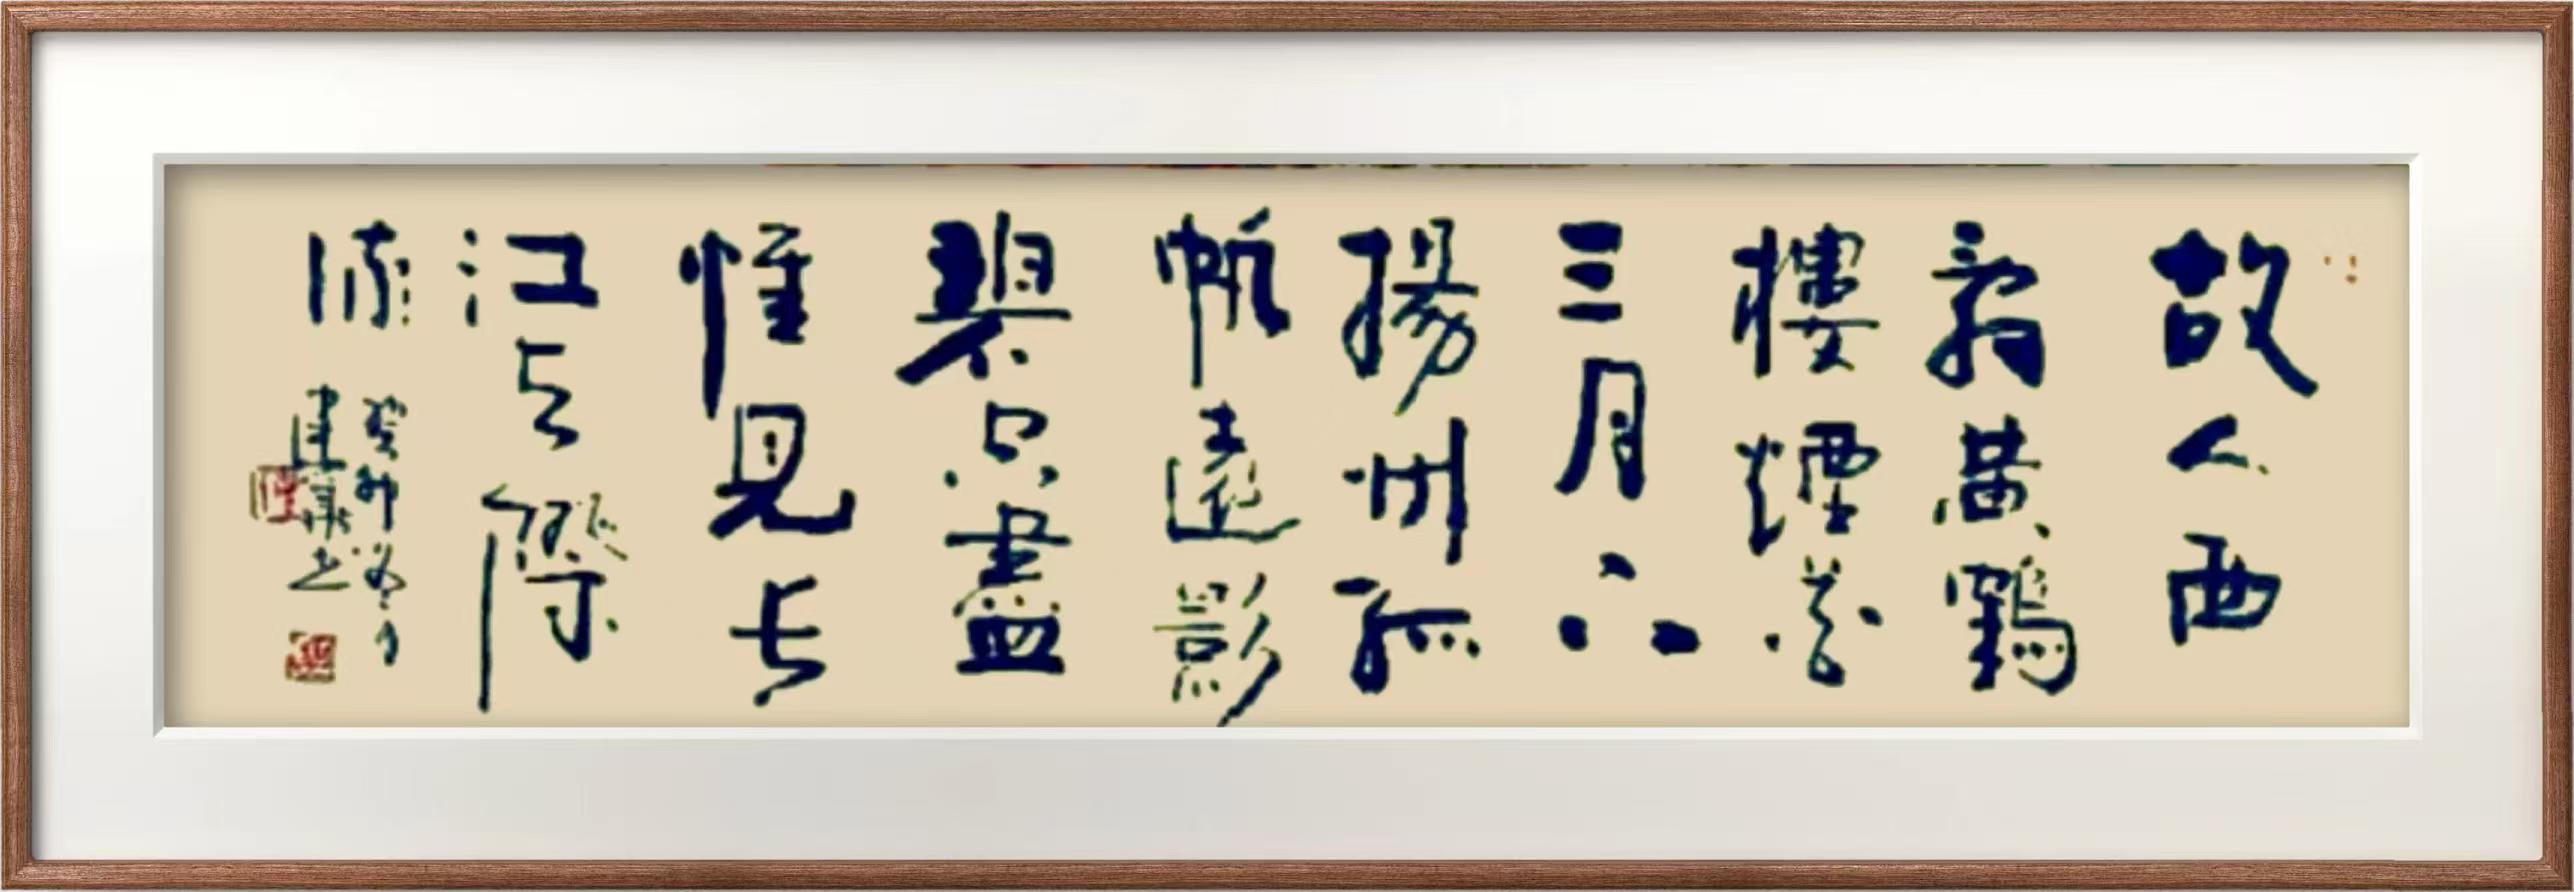 故人西
辭黃鶴
樓煙花
三月下
揚州孤
帆遠影
碧空盡
惟見長
江天際
流
癸卯
建華书